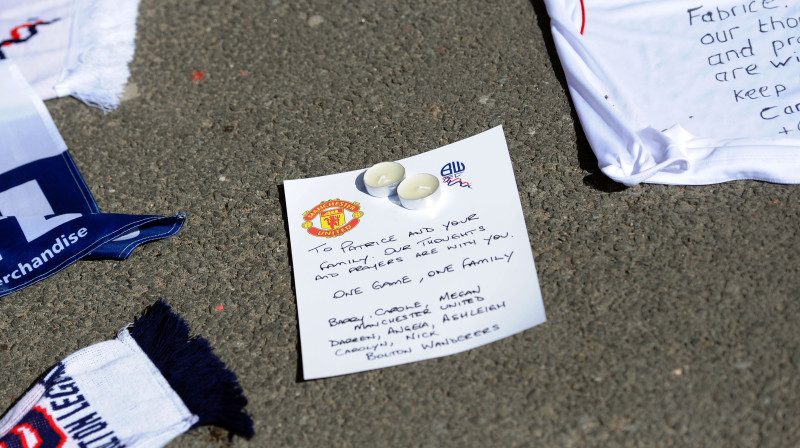 MANCHESTER
UNITED
BW
TO PATRICE AND YOUR
FAMILY. OUR THOUGHTS
AND PRAYERS ARE WITH YOU.
ONE GAME, ONE FAMILY
BARRY, CAROLE, MEGAN
MANCHESTER UNITED
DARREN, ANGELA, ASHLEIGH
CAROLYN, NICK
BOLTON WANDERERS
Fabrice.
our tho
and pra
are wi
keep
Car
merchandise
TON LEGE